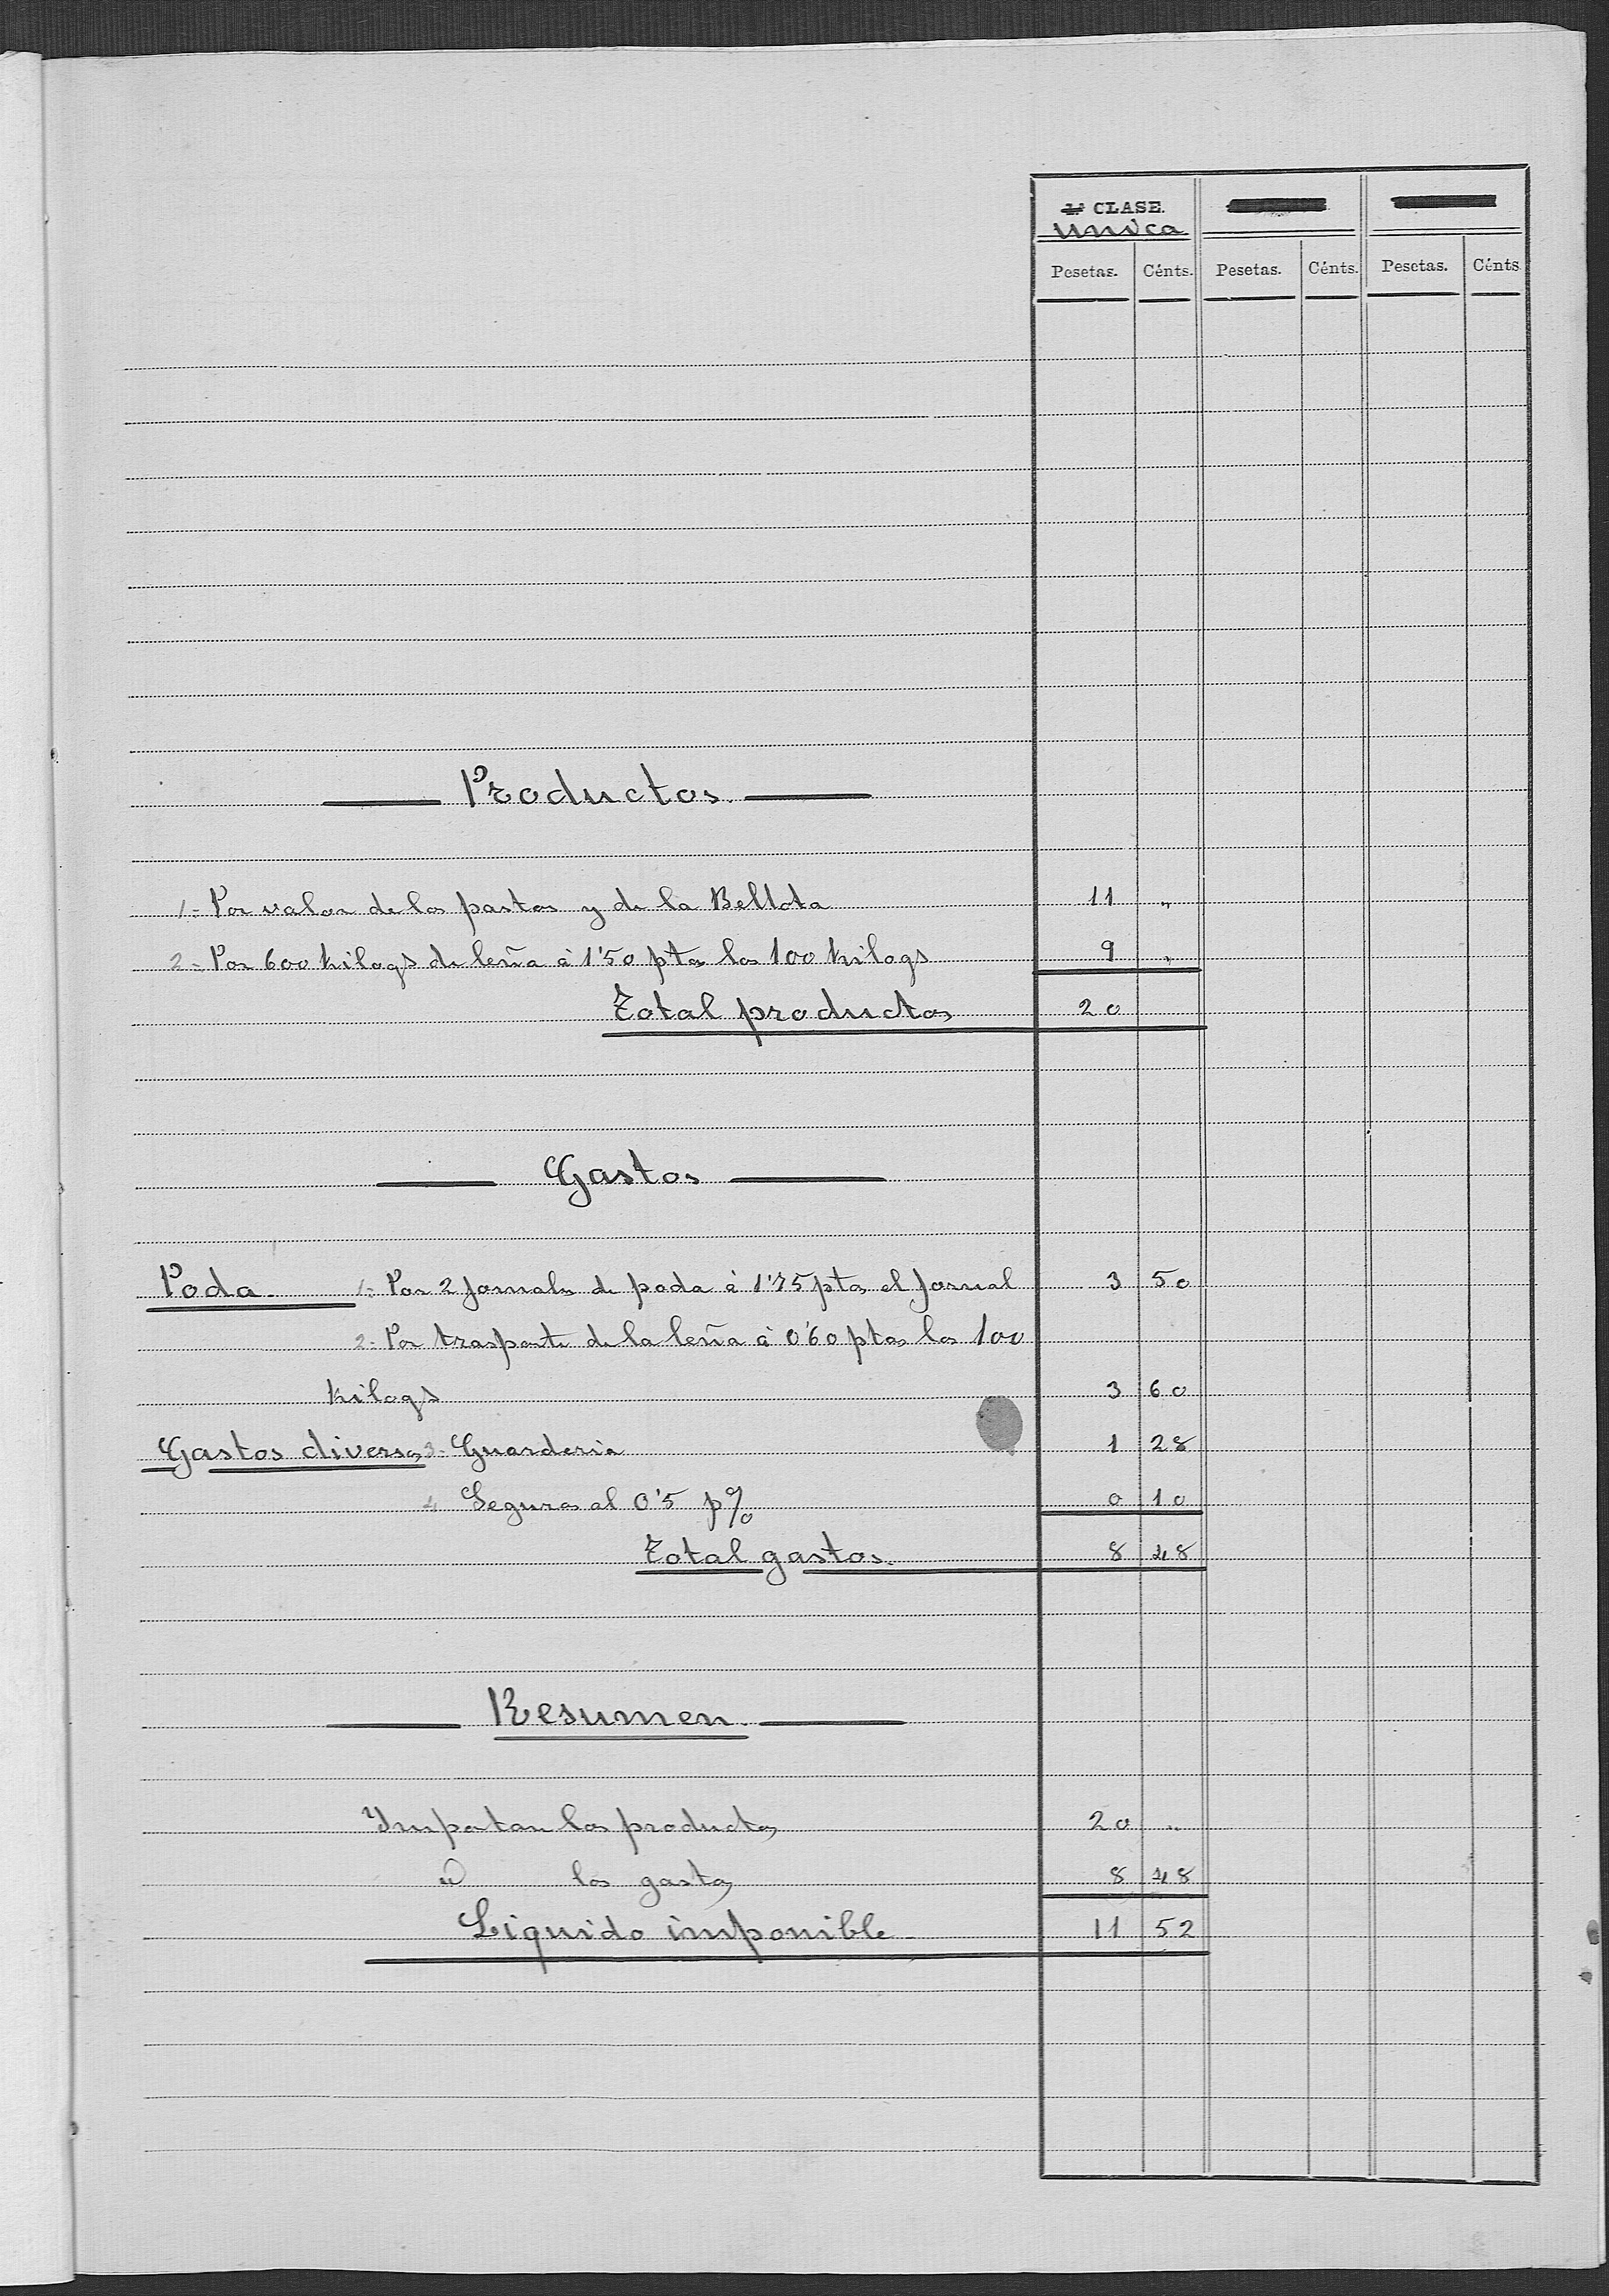 1ª CLASE.
Unica
Pesetas. Cénts. Pesetas. Cénts. Pesetas. Cénts
Productos.
1.- Por valor de los pastos y de la Bellota 11 "
2.- Por 600 kilogs de leña á 1'50 ptas los 100 kilogs 9 "
Total productos 20
Gastos
Poda. 1.- Por 2 jornales de poda á 1'75 ptas el jornal 3 50
2.- Por trasporte de la leña á 0'60 ptas los 100
kilogs 3 60
Gastos diversos 3.- Guarderia 1 28
4 Seguros al 0'5 p% 0 10
Total gastos. 8 48
Resumen.
Importan los productos 20 "
id los gastos 8 48
Liquido imponible. 11 52